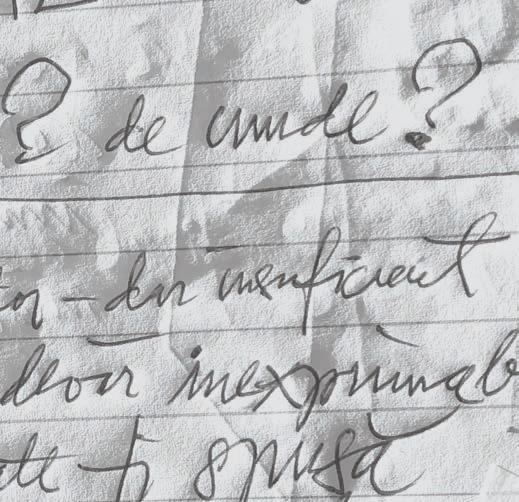 ? de unde?
tor - dar insuficient
devăr inexprimab
ate fi spusă